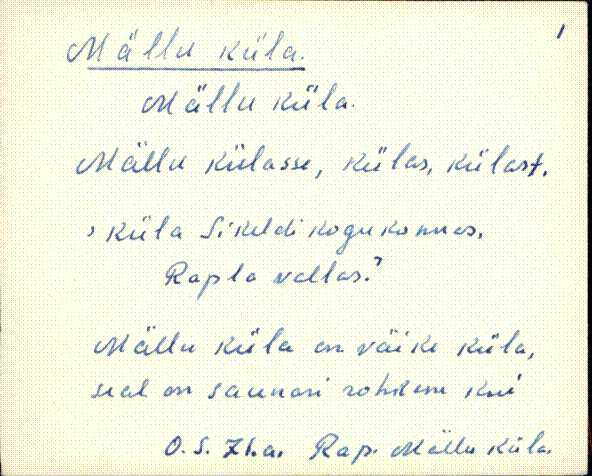 1
Mällu küla.
Mällu küla.
Mällu külasse, külas, külast.
, küla Sikeldi kogukonnas,
Rapla vallas.?
Mällu küla on väike küla,
seal on saunasi rohkem kui
O. S. 71.a. Rap. Mällu küla.